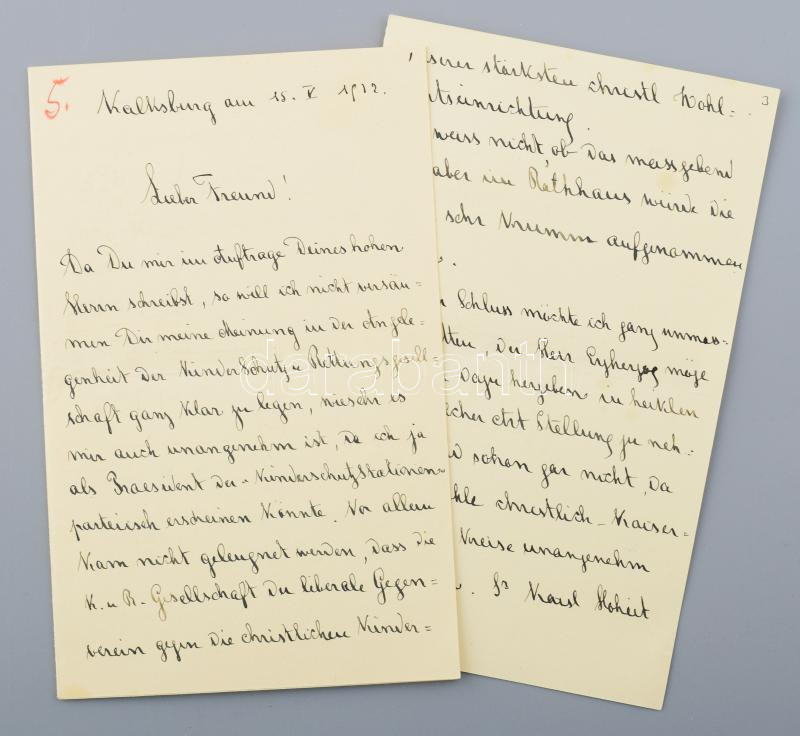 5.
Kalksburg am 18. V 1912.
Lieber Freund!
Da Du mir im Auftrage Deines hohen
Herrn schreibst, so will ich nicht versäu=
men Dir meine Meinung in der Angele=
genheit der Kinderschutz u Rettungsgesell=
schaft ganz klar zu legen, wiesehr es
mir auch unangenehm ist, da ich ja
als Praesident der Kinderschutzstationen
parteiisch erscheinen könnte. Vor allem
kann nicht geleugnet werden, dass die
K. u R. Gesellschaft der liberale Gegen=
verein gegen die christlichen Kinder=
3
serer stärksten christl Wohl=
tseinrichtung.
weiss nicht, ob das massgebend
aber im Rathhaus würde die
sehr krumm aufgenommen
Schluss möchte ich ganz unmass=
der Herr Erzherzog möge
dazu hergeben in heiklen
cher Art Stellung zu neh=
schon gar nicht, da
christlich-Kaiser=
Kreise unangenehm
Sr Kaisl Hoheit
darabanth